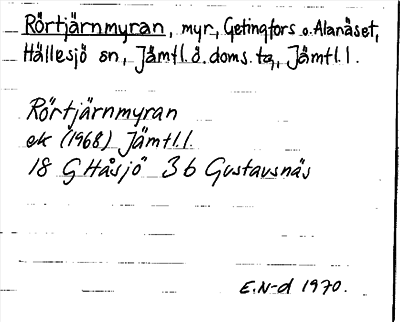 Rörtjärnmyran, myr, Getingfors o. Alanäset,
Hällesjö sn, Jämtl. ö. doms. tg, Jämtl. l.
Rörtjärnmyran
ek (1968) Jämtl. l.
18 G Håsjö 3 b Gustavsnäs
E. N-d 1970.